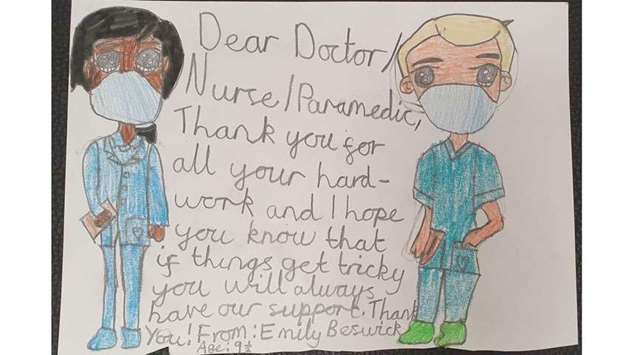 Dear Doctor/
Nurse/Paramedic,
Thank you for
all your hard-
work and I hope
you know that
if things get tricky
you will always
have our support. Thank
You! From: Emily Beswick
Age: 9½